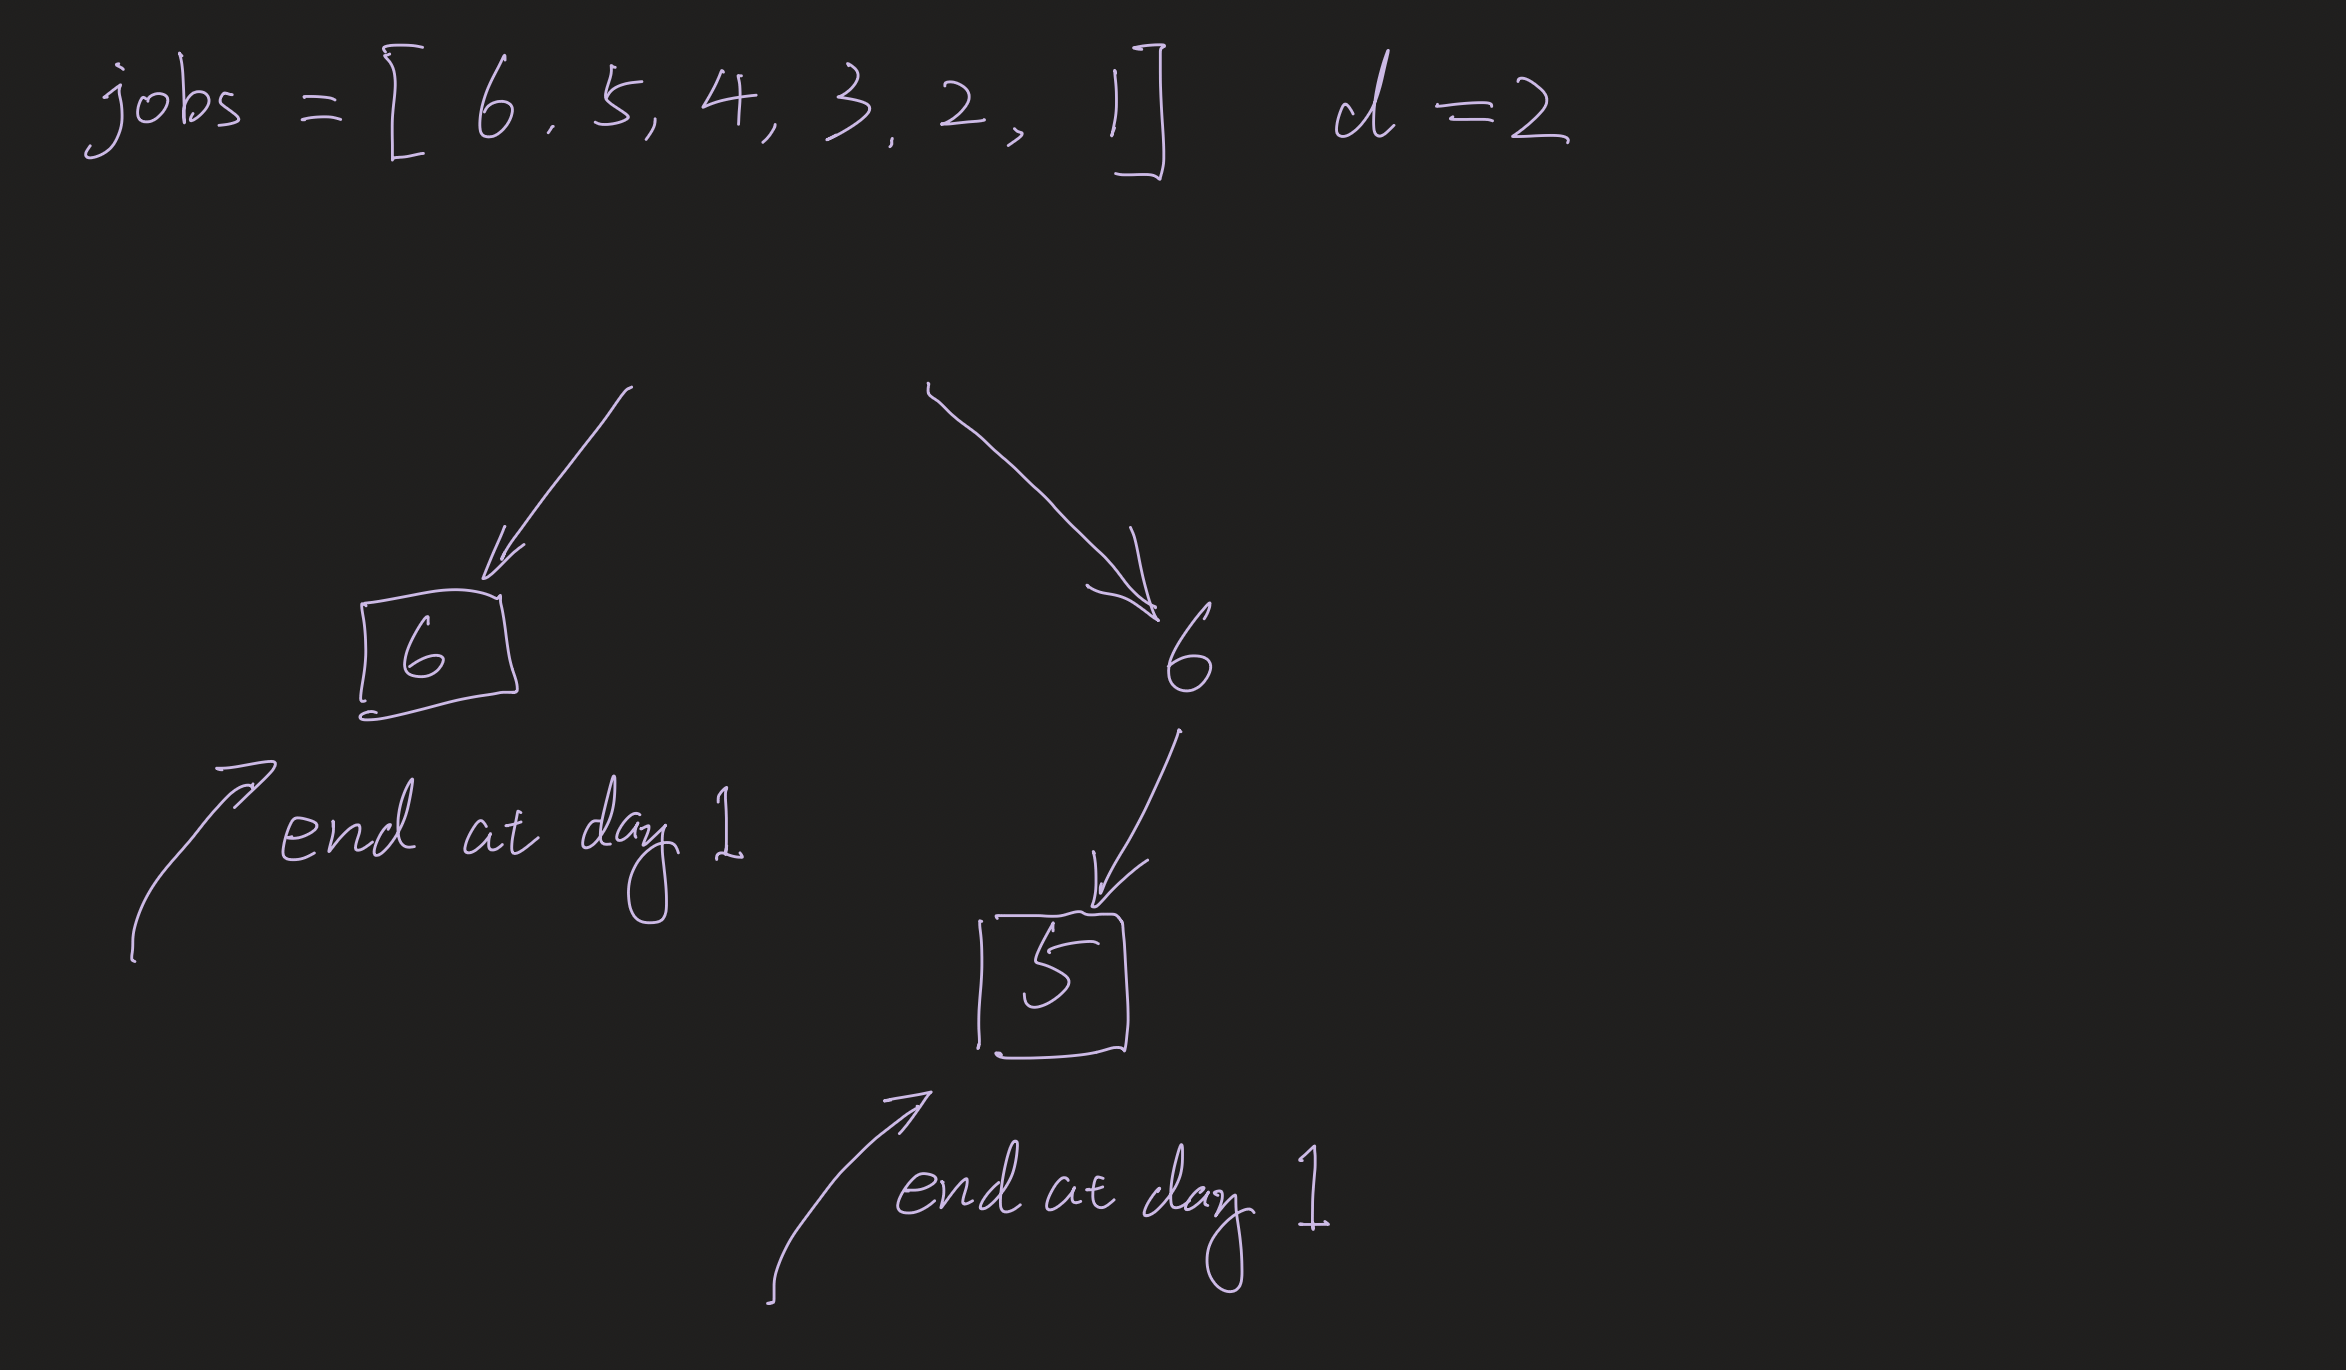 jobs = [ 6, 5, 4, 3, 2, 1] d = 2
6
6
end at day 1
5
end at day 1